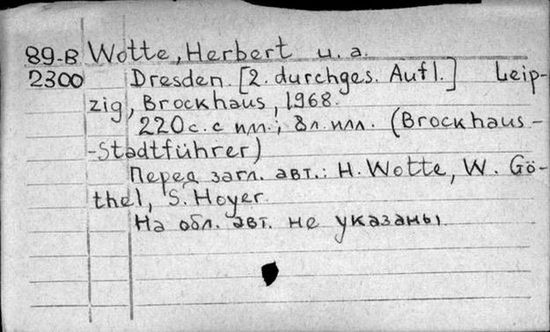 89-B Wotte, Herbert u. a.
2300 Dresden. [2. durchges. Aufl.] Leip-
zig, Brockhaus, 1968.
220 с. с илл.; 8 л. илл. (Brockhaus-
-Stadtführer)
Перед загл. авт.: H. Wotte, W. Gö-
thel, S. Hoyer.
На обл. авт. не указаны